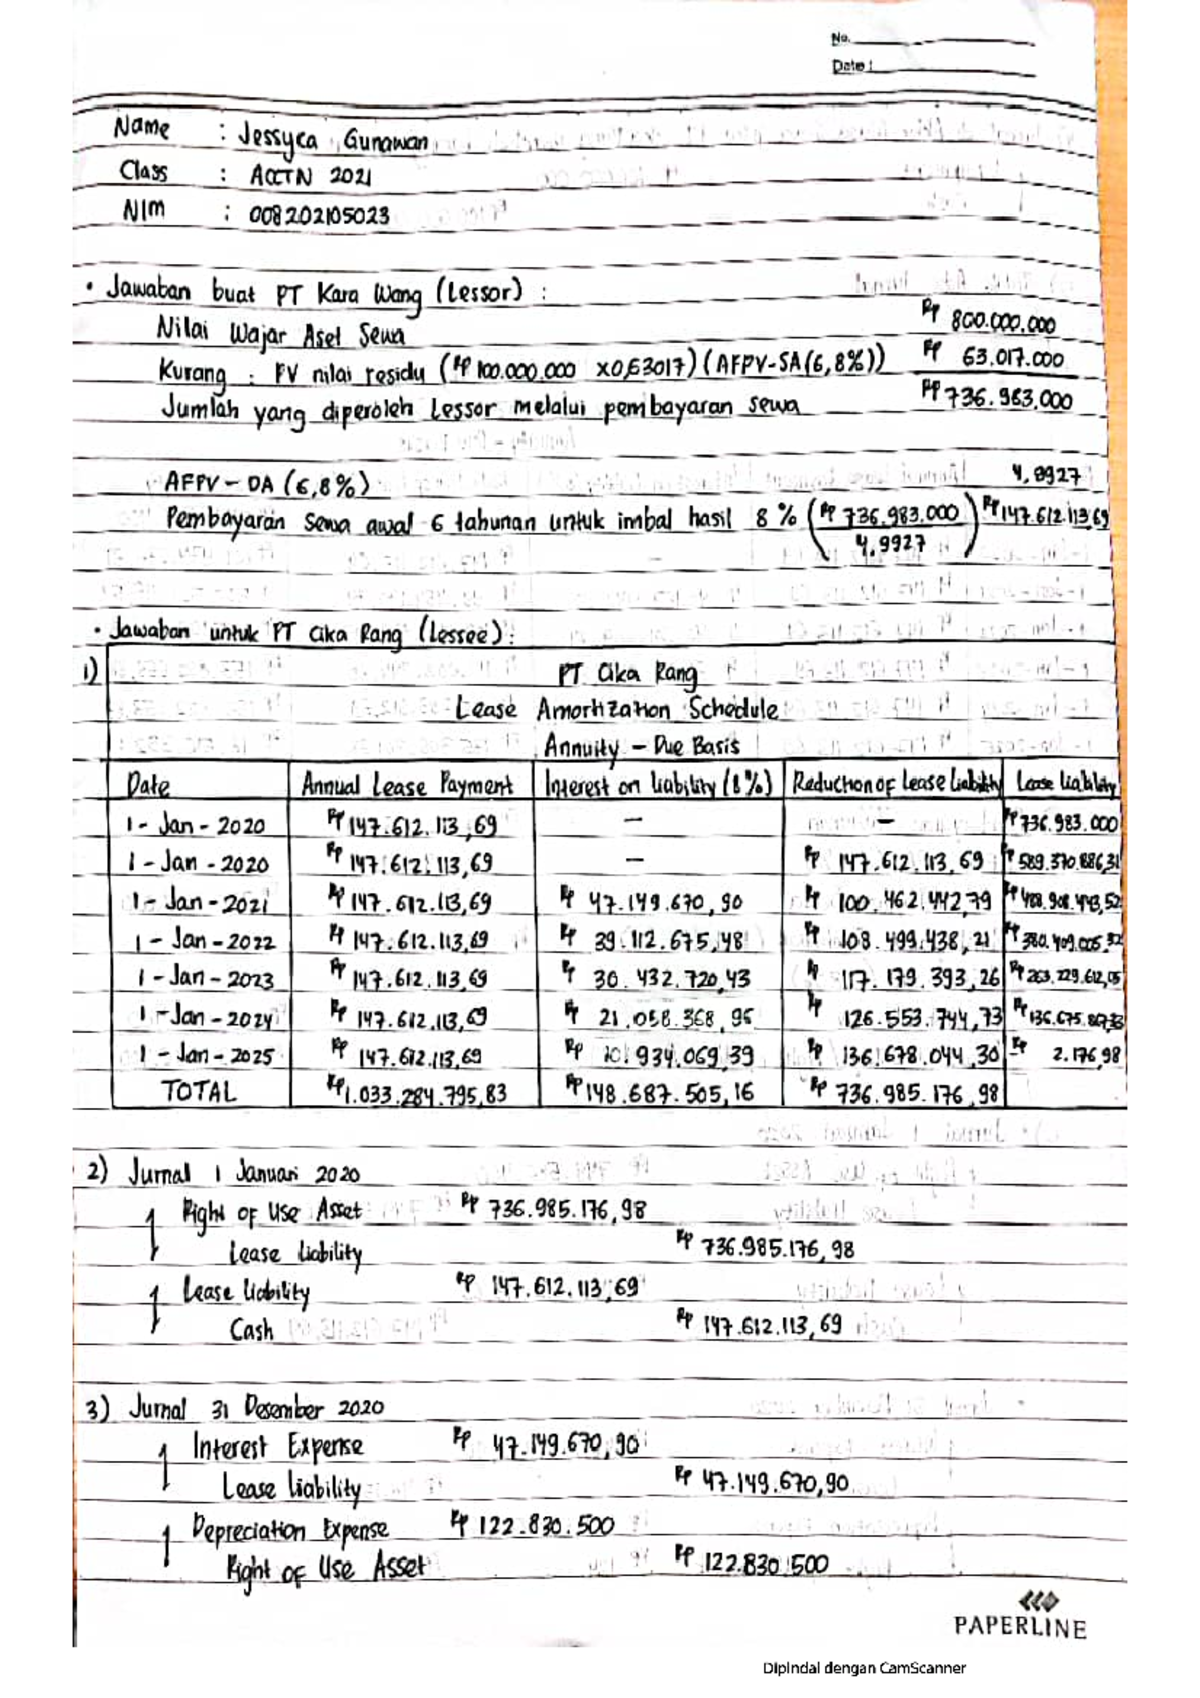 No.
Date :
Name : Jessyca Gunawan
Class : ACCTN 2021
NIM : 008202105023
• Jawaban buat PT Kara Wang (Lessor) :
Nilai Wajar Aset Sewa Rp 800.000.000
Kurang : PV nilai residu (Rp 100.000.000 x 0,63017) (AFPV-SA(6,8%)) Rp 63.017.000
Jumlah yang diperoleh Lessor melalui pembayaran sewa Rp 736.983.000
AFPV - DA (6,8%) 4,9927
Pembayaran sewa awal 6 tahunan untuk imbal hasil 8 % (Rp 736.983.000 / 4,9927) Rp 147.612.113,69
• Jawaban untuk PT Cika Rang (Lessee) :
1) PT Cika Rang
Lease Amortization Schedule
Annuity - Due Basis
Date Annual Lease Payment Interest on liability (8%) Reduction of Lease Liability Lease liability
1 - Jan - 2020 Rp 147.612.113,69 — — Rp 736.983.000
1 - Jan - 2020 Rp 147.612.113,69 — Rp 147.612.113,69 Rp 589.370.886,31
1 - Jan - 2021 Rp 147.612.113,69 Rp 47.149.670,90 Rp 100.462.442,79 Rp 488.908.443,52
1 - Jan - 2022 Rp 147.612.113,69 Rp 39.112.675,48 Rp 108.499.438,21 Rp 380.409.005,32
1 - Jan - 2023 Rp 147.612.113,69 Rp 30.432.720,43 Rp 117.179.393,26 Rp 263.229.612,05
1 - Jan - 2024 Rp 147.612.113,69 Rp 21.058.368,96 Rp 126.553.744,73 Rp
1 - Jan - 2025 Rp 147.612.113,69 Rp 10.934.069,39 Rp 136.678.044,30 Rp 2.176,98
TOTAL Rp 1.033.284.795,83 Rp 148.687.505,16 Rp 736.985.176,98
2) Jurnal 1 Januari 2020
Right of Use Asset Rp 736.985.176,98
Lease Liability Rp 736.985.176,98
Lease Liability Rp 147.612.113,69
Cash Rp 147.612.113,69
3) Jurnal 31 Desember 2020
Interest Expense Rp 47.149.670,90
Lease liability Rp 47.149.670,90
Depreciation Expense Rp 122.830.500
Right of Use Asset Rp 122.830.500
PAPERLINE
Dipindai dengan CamScanner